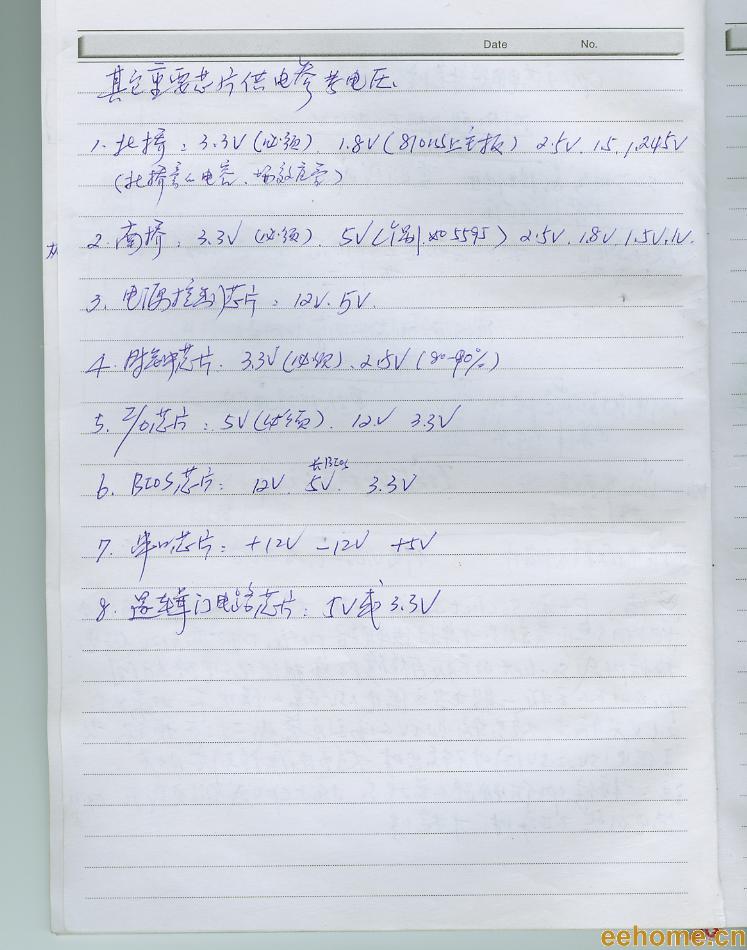 Date No.
其它重要芯片供电参考电压.
1. 北桥: 3.3V (必须). 1.8V (810以上主板) 2.5V. 1.5. 1.245V
(北桥旁人电容、场效应管)
2. 南桥: 3.3V (必须). 5V ( 5595) 2.5V. 1.8V 1.5V.
3. 电源控制芯片: 12V. 5V.
4. 时钟芯片. 3.3V (必须). 2.5V (80-90%)
5. I/O芯片: 5V (必须). 12V 3.3V
长BIOS
6. BIOS芯片: 12V. 5V. 3.3V
7. 串口芯片: +12V -12V +5V
8. 逻辑门电路芯片: 5V或3.3V
eehome.cn